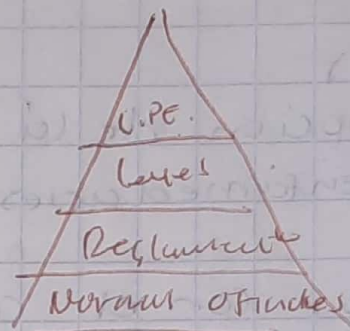 C.P.E.
Leyes
Reglamento
Normas Oficiales